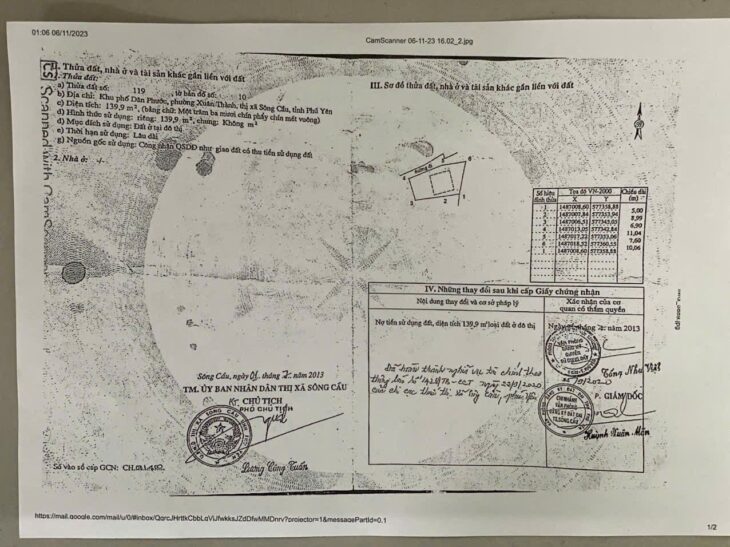 01:06 06/11/2023
CamScanner 06-11-23 16.02_2.jpg
CS Scanned with CamSc
II. Thửa đất, nhà ở và tài sản khác gắn liền với đất
1. Thửa đất:
a) Thửa đất số: 119, tờ bản đồ số: 10
b) Địa chỉ: Khu phố Dân Phước, phường Xuân Thành, thị xã Sông Cầu, tỉnh Phú Yên
c) Diện tích: 139,9 m², (bằng chữ: Một trăm ba mươi chín phẩy chín mét vuông)
d) Hình thức sử dụng: riêng: 139,9 m², chung: Không m²
đ) Mục đích sử dụng: Đất ở tại đô thị
e) Thời hạn sử dụng: Lâu dài
g) Nguồn gốc sử dụng: Công nhận QSDĐ như giao đất có thu tiền sử dụng đất
2. Nhà ở: -/-
Sông Cầu, ngày 01 tháng 2 năm 2013
TM. ỦY BAN NHÂN DÂN THỊ XÃ SÔNG CẦU
KT. CHỦ TỊCH
PHÓ CHỦ TỊCH
Lương Công Tuấn
Số vào sổ cấp GCN:
III. Sơ đồ thửa đất, nhà ở và tài sản khác gắn liền với đất
Đường đi
6
4
3
2
1
Số hiệu đỉnh thửa
Tọa độ VN-2000
Chiều dài (m)
X Y
1 1487008,60 577358,88
5,00
2 1487007,84 577353,94
8,99
3 1487006,51 577345,05
6,90
4 1487013,05 577342,84
11,04
5 1487017,22 577353,06
7,60
6 1487018,52 577360,55
10,06
1 1487008,60 577358,88
IV. Những thay đổi sau khi cấp Giấy chứng nhận
Nội dung thay đổi và cơ sở pháp lý
Xác nhận của cơ quan có thẩm quyền
Nợ tiền sử dụng đất, diện tích 139,9 m² loại đất ở đô thị
2013
VĂN PHÒNG ĐĂNG KÝ QUYỀN SỬ DỤNG ĐẤT
Tống Như Việt
Đã hoàn thành nghĩa vụ tài chính theo
ngày 22/9/2020
của chi cục thuế
P. GIÁM ĐỐC
CHI NHÁNH VĂN PHÒNG ĐĂNG KÝ ĐẤT ĐAI TX.SÔNG CẦU
Huỳnh Xuân Mẫn
1/2